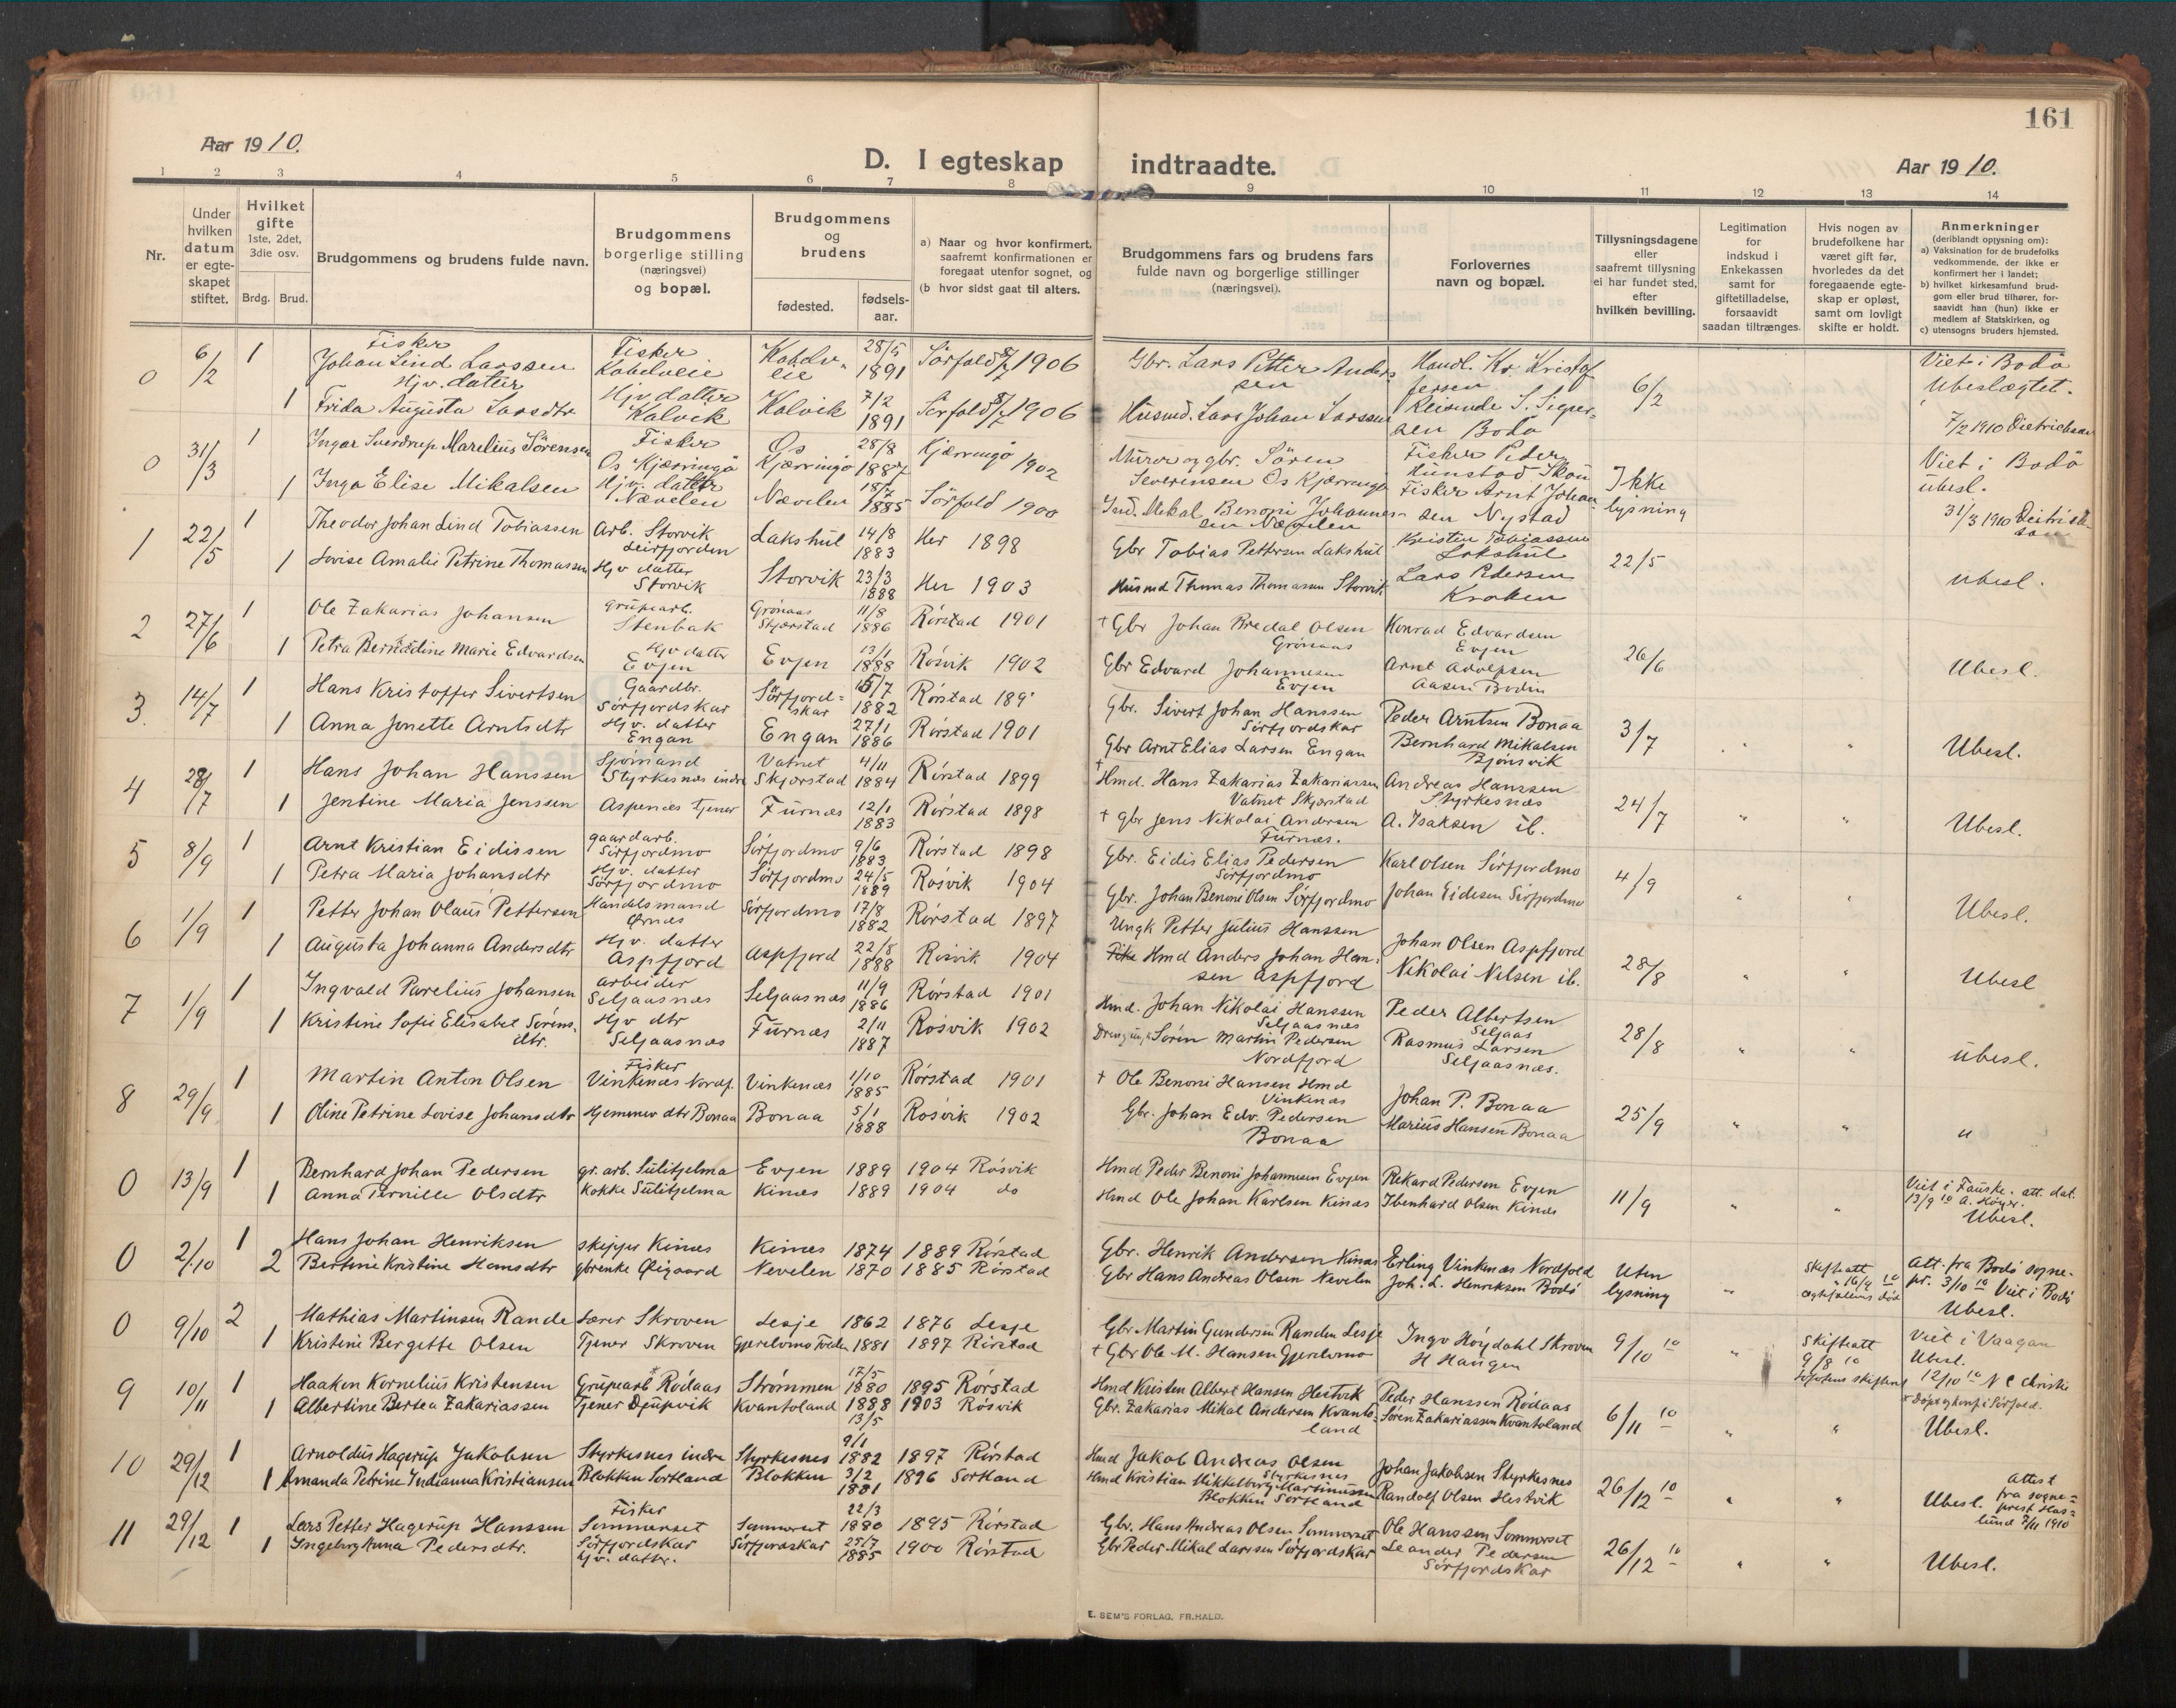 161
Aar 1910.
D. I egteskap indtraadte.
Aar 1910.
1 2 3 4 5 6 7 8 9 10 11 12 13 14
Nr.
Under hvilken datum er egte-skapet stiftet.
Hvilket gifte
1ste, 2det, 3die osv.
Brdg. Brud.
Brudgommens og brudens fulde navn.
Brudgommens borgerlige stilling (næringsvei) og bopæl.
Brudgommens og brudens
fødested. fødsels-aar.
a) Naar og hvor konfirmert, saafremt konfirmationen er foregaat utenfor sognet, og
(b hvor sidst gaat til alters.
Brudgommens fars og brudens fars fulde navn og borgerlige stillinger (næringsvei).
Forlovernes navn og bopæl.
Tillysningsdagene eller saafremt tillysning ei har fundet sted, efter hvilken bevilling.
Legitimation for indskud i Enkekassen samt for giftetilladelse, forsaavidt saadan tiltrænges.
Hvis nogen av brudefolkene har været gift før, hvorledes da det foregaaende egte-skap er opløst, samt om lovligt skifte er holdt.
Anmerkninger
(deriblandt oplysning om):
a) Vaksination for de brudefolks vedkommende, der ikke er konfirmert her i landet;
b) hvilket kirkesamfund brud-gom eller brud tilhører, for-saavidt han (hun) ikke er medlem af Statskirken, og
c) utensogns bruders hjemsted.
0 6/2 1 Fisker Johan Lind Larssen Fisker Kobelveie Kobelv-eie 28/5 1891 Sörfold 1906 Gbr. Lars Petter Andersen Handl. Kr. Kristoffersen 6/2 Viet i Bodö Ubeslægtet.
1 Hjv. datter Frida Augusta Larsdtr Hjv datter Kalvik Kalvik 7/2 1891 Sörfold 1906 Husmd. Lars Johan Larssen Reisende S. Bodö 7/2 1910 Dietrichson
0 31/3 1 Ingar Sverdrup Marelius Sörensen Fisker Os Kjærringö Os Kjærringö 28/8 1887 Kjærringö 1902 Murer og gbr. Sören Severinsen Os Kjærringö Fisker Peder Hunstad Ikke lysning Viet i Bodö ubesl.
1 Inga Elise Mikalsen Hjv. datter Nævelen Nævelen 1885 Sörfold 1900 Ind. Mikal Benoni Johannessen Nævelen Fisker Arnt Johansen Nystad 31/3 1910 Deitrichson
1 22/5 1 Theodor Johan Lind Tobiassen Arb. Storvik Leirfjorden Lakshul 14/8 1883 Her 1898 Gbr Tobias Pettersen Lakshul Kristen Tobiassen Lakshul 22/5 Ubesl.
1 Lovise Amalie Petrine Thomassen Hjv datter Storvik Storvik 23/3 1888 Her 1903 Husmd Thomas Thomassen Storvik Lars Pedersen Kroken
2 27/6 1 Ole Zakarias Johansen grubearb. Stenbak Grönaas Skjærstad 11/8 1886 Rørstad 1901 † Gbr Johan Bredal Olsen Grönaas Konrad Edvardsen Evjen 26/6 Ubesl.
1 Petra Bernödine Marie Edvardsen Hjv datter Evjen Evjen 13/1 1888 Røsvik 1902 Gbr Edvard Johannesen Evjen Arnt Adolfsen Aasen Bodin
3. 14/7 1 Hans Kristoffer Sivertsen Gaardbr. Sörfjordskar Sörfjord-skar 15/7 1882 Rørstad 189 Gbr. Sivert Johan Hanssen Sörfjordskar Peder Arntsen Bonaa 3/7 Ubesl.
1 Anna Jonette Arntsdtr Hjv. datter Engan Engan 27/1 1886 Rørstad 1901 Gbr Arnt Elias Larsen Engan Bernhard Mikalsen Bjönsvik
4 28/7 1 Hans Johan Hanssen Sjömand Styrkesnæs indre Vatnet Skjærstad 4/11 1884 Rørstad 1899 † Hmd. Hans Zakarias Zakariassen Vatnet Skjærstad Andreas Hanssen Styrkesnæs 24/7 " " Ubesl.
1 Jentine Maria Jenssen Aspenæs tjener Furnæs 12/1 1883 Rørstad 1898 † gbr Jens Nikolai Andersen Furnæs. A. Isaksen ib.
5 8/9 1 Arnt Kristian Eidissen gaardarb. Sörfjordmo Sörfjordmo 9/6 1883 Rørstad 1898 Gbr. Eidis Elias Pedersen Sörfjordmo Karl Olsen Sörfjordmo 4/9 " " Ubesl.
1 Petra Maria Johansdtr Hjv. datter Sörfjordmo Sörfjordmo 24/5 1889 Røsvik 1904 Gbr. Johan Benoni Olsen Sörfjordmo Johan Eidesen Sörfjordmo
6 1/9 1 Petter Johan Olaus Pettersen Handelsmand Örnes Sörfjordmo 17/8 1882 Rørstad 1897 Ungk Petter Julius Hanssen Johan Olsen Aspfjord 28/8 " " Ubesl
1 Augusta Johanna Andersdtr Hjv. datter Aspfjord Aspfjord 22/8 1888 Røsvik 1904 Hmd Anders Johan Hansen Aspfjord Nikolai Nilsen ib.
7 1/9 1 Ingvald Parelius Johansen arbeider Seljaasnæs Seljaasnæs 11/9 1886 Rørstad 1901 Hmd. Johan Nikolai Hanssen Seljaasnæs Peder Albertsen Seljaas 28/8 " " ubesl.
1 Kristine Sofie Elisabet Sörensdtr. Hjv dtr Seljaasnæs Furnæs 2/11 1887 Røsvik 1902 Sören Martin Pedersen Nordfjord Rasmus Larsen Seljaasnæs.
8 29/9 1 Martin Anton Olsen Fisker Vinkenæs Nordf. Vinkenæs 1/10 1885 Rørstad 1901 † Ole Benoni Hansen Hmd Vinkenæs Johan P. Bonaa 25/9 " " u
1 Oline Petrine Lovise Johansdtr Hjemmev dtr Bonaa Bonaa 5/1 1888 Røsvik 1902 Gbr. Johan Edv. Pedersen Bonaa Marius Hansen Bonaa
0 13/9 1 Bernhard Johan Pedersen gr. arb. Sulitjelma Evjen 1889 1904 Røsvik Hmd Peder Benoni Johannesen Evjen Rikard Pedersen Evjen 11/9 " " Viet i Fauske. att. dat. 13/9 10 A. Höyer. Ubesl.
1 Anna Pernille Olsdtr Kokke Sulitjelma Kinæs 1889 1904 do Hmd Ole Johan Karlsen Kinæs Ibenhard Olsen Kinæs
0 2/10 1 Hans Johan Henriksen skipper Kinæs Kinæs 1874 1889 Rørstad Gbr. Henrik Andersen Kinæs Erling Vinkenæs Nordfold Uten lysning " Skifteatt 10 død Att. fra Bodö sogne-pr. 3/10 10 Viet i Bodö Ubesl.
2 Bertine Kristine Hansdtr gbrenke Øigaard Nevelen 1870 1885 Rørstad Gbr Hans Andreas Olsen Nevelen Joh. L. Henriksen Bodö
0 9/10 2 Mathias Martinsen Rande Lærer Skroven Lesje 1862 1876 Lesje Gbr. Martin Gundersen Randen Lesje Ingv Höydahl Skroven 9/10 10 " Skifteatt 9/8 10 Lofotens Viet i Vaagan Ubesl. 12/10 10 N C Christie
1 Kristine Bergette Olsen Tjener Skroven Gjerelvmo Folden 1881 1897 Rørstad † Gbr Ole M. Hansen Gjerelvmo H Haugen
9 10/11 1 Haakon Kornelius Kristensen Grubearb Rödaas Strømmen 17/5 1880 1895 Rørstad Hmd Kristen Albert Hansen Hestvik Peder Hanssen Rödaas 6/11 10 " " i Sörfold. Ubesl.
1 Albertine Bertea Zakariassen Tjener Djupvik Kvantoland 1888 13/5 1903 Røsvik Gbr. Zakarias Mikal Andersen Kvantoland Sören Zakariassen Kvantoland
10 29/12 1 Arnoldus Hagerup Jakobsen Styrkesnes indre Styrkesnes 9/1 1882 1897 Rørstad Hmd Jakob Andreas Olsen Styrkesnes Johan Jakobsen Styrkesnes 26/12 10 " " Ubesl. attest fra sogne-prest Has-lund 7/11 1910
1 Amanda Petrine Indianna Kristiansen Blokken Sortland Blokken 3/2 1881 1896 Sortland Hmd Kristian Mikkelborg Martinussen Blokken Sortland Randolf Olsen Hestvik
11 29/12 1 Lars Petter Hagerup Hanssen Fisker Sommerset Sommerset 22/3 1880 1895 Rørstad Gbr. Hans Andreas Olsen Sommerset Ole Hanssen Sommerset 26/12 10 " " Ubesl.
1 Ingeborg Anna Pedersdtr. Sörfjordskar Hjv. datter. Sörfjordskar 25/7 1885 1900 Rørstad Gbr Peder Mikal Larssen Sörfjordskar Leander Pedersen Sörfjordskar
E. SEM'S FORLAG, FR.HALD.